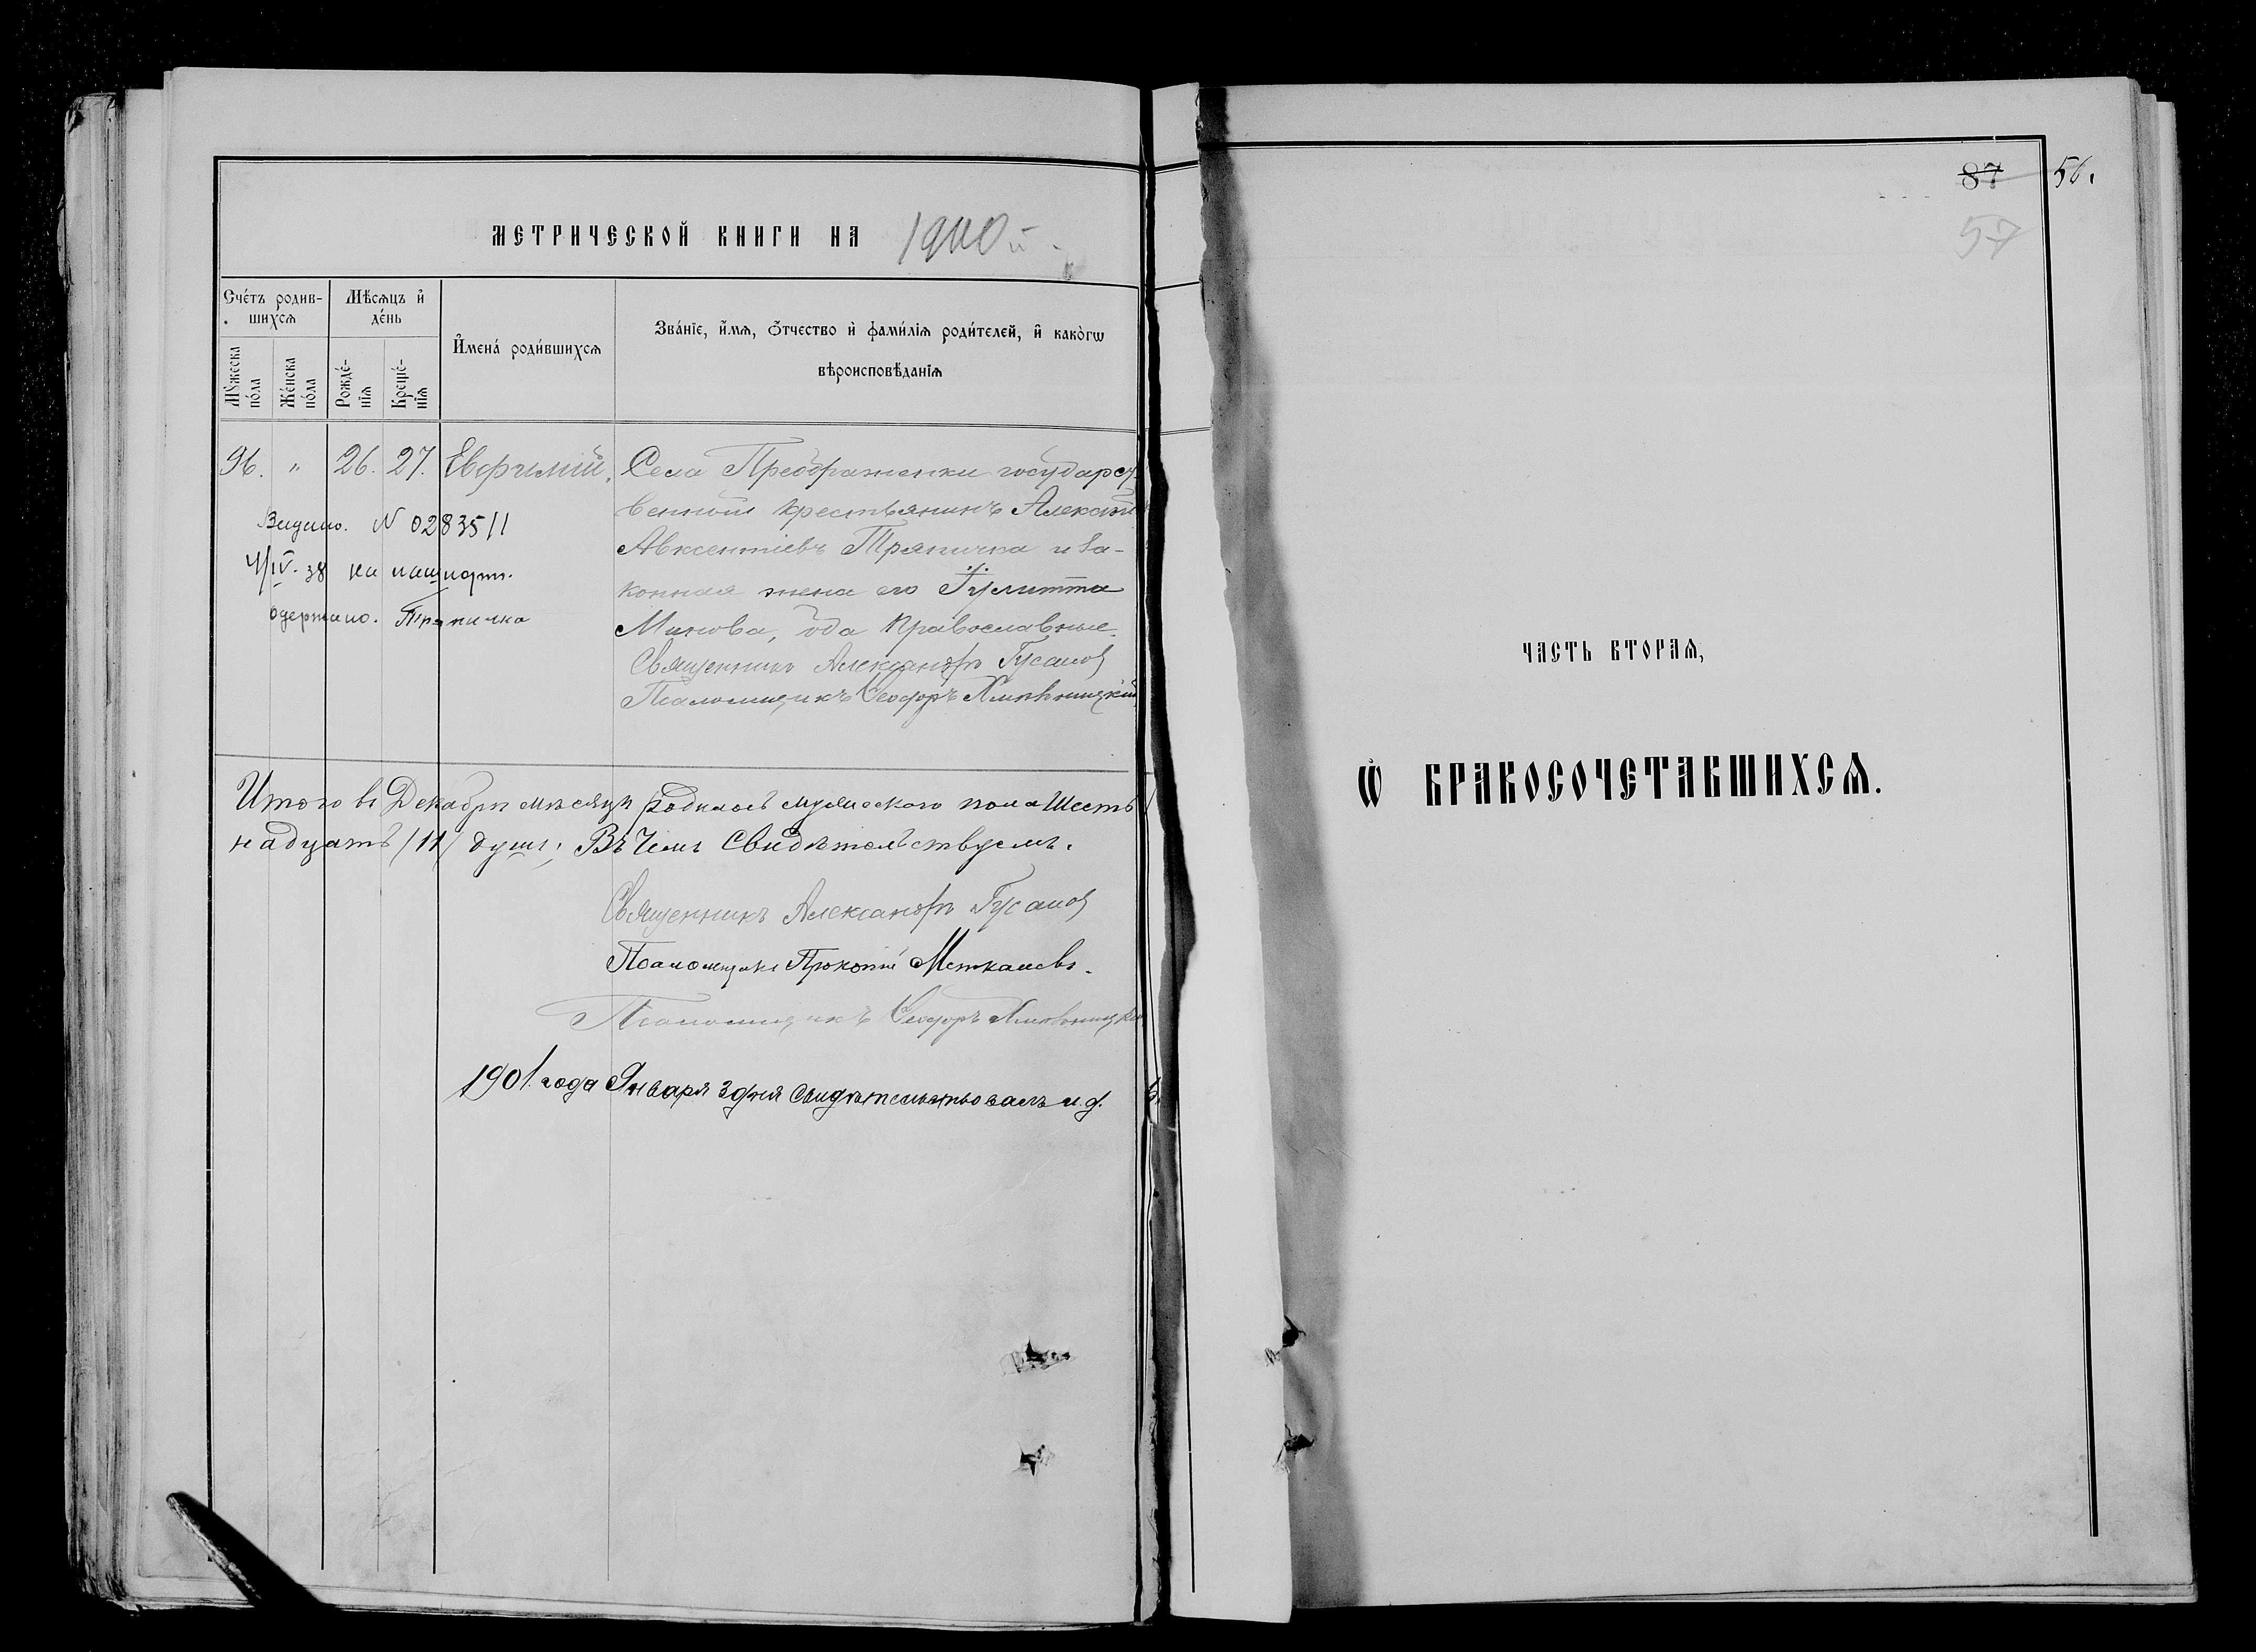 МЕТРИЧЕСКОЙ КНИГИ НА 1900й
Сче́тъ родив-
шихсѧ
Мѣсѧцъ и҆
де́нь
И҆мена́ роди́вшихсѧ
Зва́нїе, и҆́мѧ, ѻ҆́тчество и҆ фами́лїѧ роди́телей, и҆ како́гѡ
вѣроисповѣ́данїѧ
Мꙋжеска
по́ла
Же́нска
по́ла
Рожде́-
нїѧ
Креще́-
нїѧ
96. " 26. 27. Евфимій.
Села Преображенки государст-
венный крестьянинъ Алексій
Авксентіевъ Тряпичка и за-
конная жена его Іулитта
Минова, оба православные.
Священникъ Александръ Гусаков
Псаломщикъ Ѳеодоръ
Видано. N 0283511
4/IV-38 на пашпорт.
одержано. Тряпичка
Итого въ Декабрѣ мѣсяцѣ родилось мужескаго пола Шесть
надцать /11/ душъ; Въ чемъ свидѣтельствуемъ.
Священникъ Александръ
Псаломщикъ Прокопій
Псаломщикъ Ѳеодоръ
1901 года Января 3 дня свидѣтельствовалъ и. д.
87 56.
57
ЧАСТЬ ВТОРАѦ,
Ѡ҆ БРАКОСОЧЕТАВШИХСѦ.